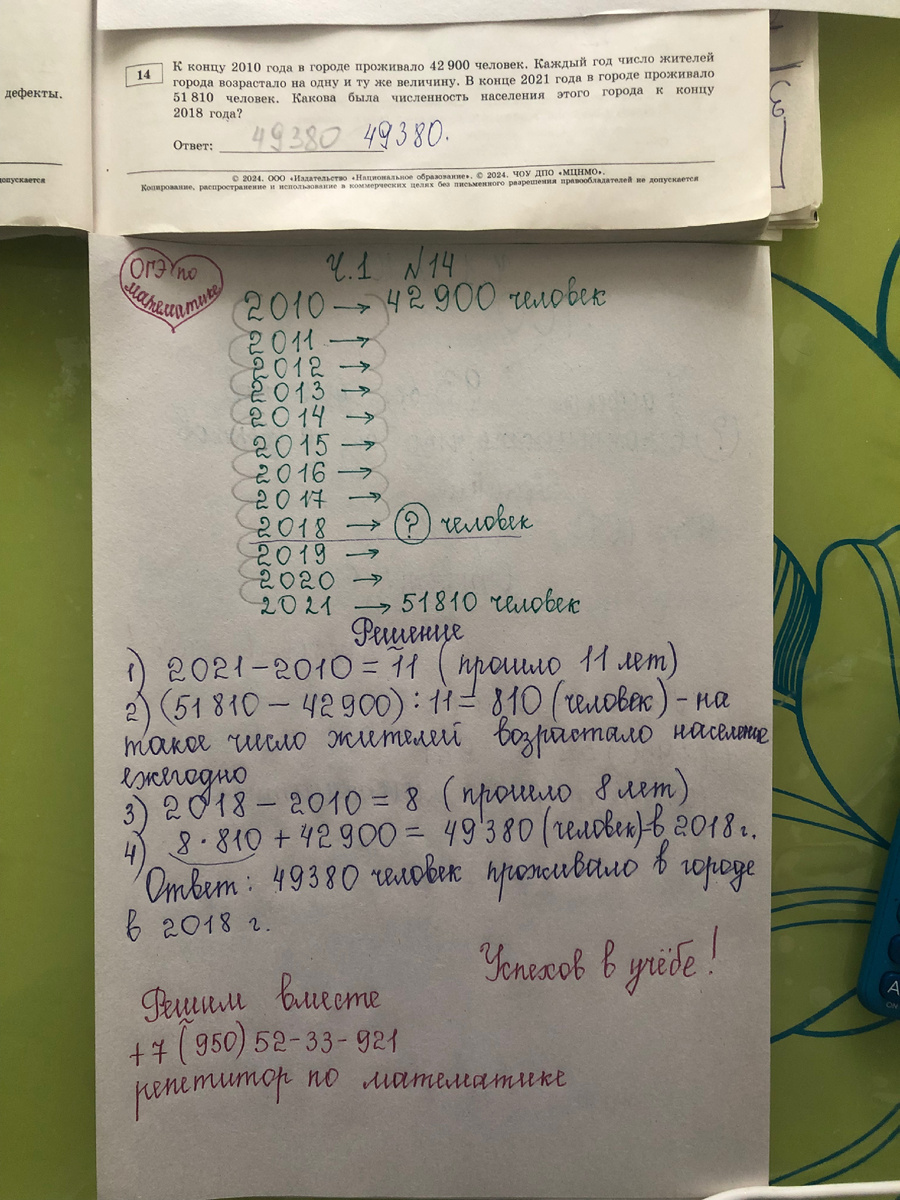 дефекты.
допускается
14
К концу 2010 года в городе проживало 42 900 человек. Каждый год число жителей
города возрастало на одну и ту же величину. В конце 2021 года в городе проживало
51 810 человек. Какова была численность населения этого города к концу
2018 года?
Ответ: 49380 49380.
© 2024. ООО «Издательство «Национальное образование». © 2024. ЧОУ ДПО «МЦНМО».
Копирование, распространение и использование в коммерческих целях без письменного разрешения правообладателей не допускается
ОГЭ по
математике
Ч.1 №14
2010 → 42 900 человек
2011 →
2012 →
2013 →
2014 →
2015 →
2016 →
2017 →
2018 → ? человек
2019 →
2020 →
2021 → 51810 человек
Решение
1) 2021 – 2010 = 11 (прошло 11 лет)
2) (51 810 – 42 900) : 11 = 810 (человек) – на
такое число жителей возрастало население
ежегодно
3) 2018 – 2010 = 8 (прошло 8 лет)
4) 8 · 810 + 42900 = 49380 (человек)-в 2018 г.
Ответ: 49380 человек проживало в городе
в 2018 г.
Успехов в учёбе!
Решим вместе
+7 (950) 52-33-921
репетитор по математике
ON